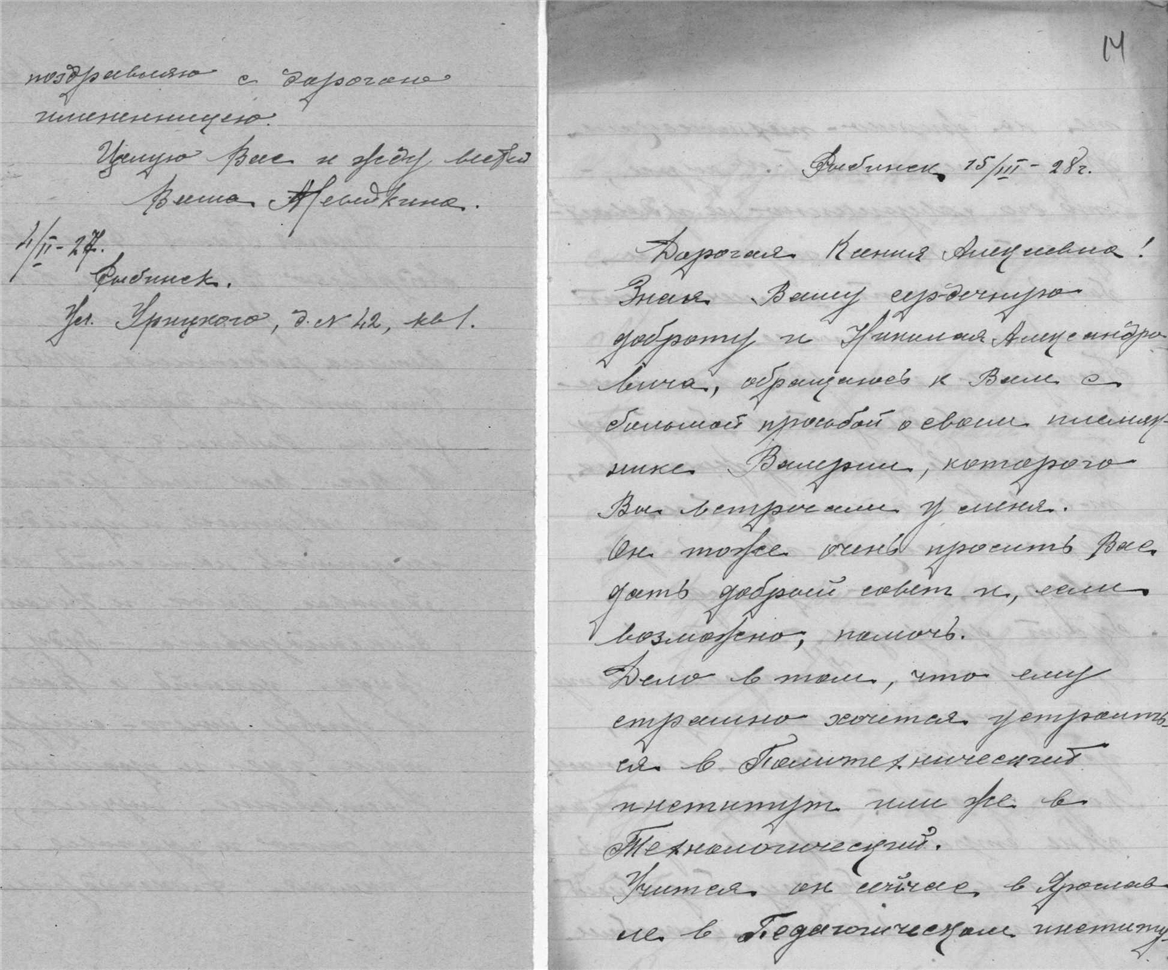 поздравляю с дорогою
имененницею.
Целую Вас и жду вестей
Ваша
4/II-27.
Рыбинск.
Ул. Урицкого, д. № 42, кв 1.
14
Рыбинск, 15/III - 28 г.
Дорогая Ксения Алексеевна!
Зная Вашу сердечную
доброту и Николая Александро
вича, обращаюсь к Вам с
большой прособой о своем племян-
нике Валерии, которого
Вы встречали у меня.
Он тоже очень просить Вас
дать добрый совет и, если
возможно, помочь.
Дело в том, что ему
страшно хочется устроить
ся в Политехнический
институт или же в
Технологический.
Учится он сейчас в Ярослав
ле в Педагогическом институ